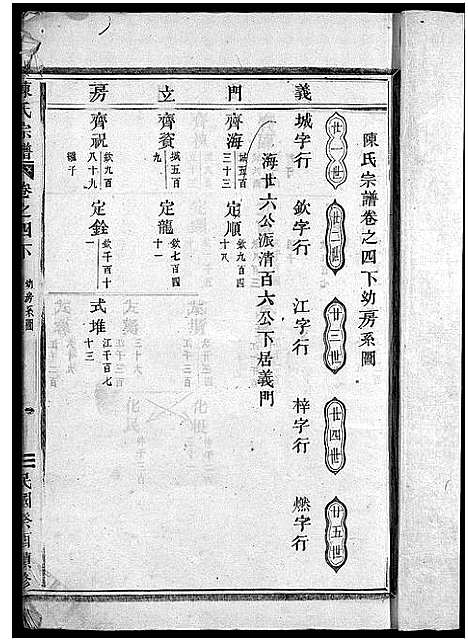 陳氏宗譜卷之四下幼房系圖
廿一世 廿二世 廿三世 廿四世 廿五世
義門立房
城字行 欽字行 江字行 梓字行 燃字行
海廿六公派清百六公下居義門
齊海 城五百三十三 定順 欽九百十八
齊資 城五百九 定龍 欽七百四十一
齊祝 欽九百八十九 繼子 定銓 欽千百十一 式堆 江千百七十三
陳氏宗譜 卷之四下 幼房系圖 民國癸酉續修